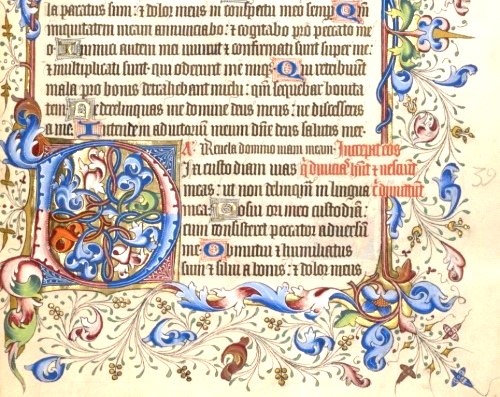 la paratus sum: & dolor meus in conspectu meo semp Qm
iniquitatem meam annunciabo: & cogitabo pro peccato me
o Inimici autem mei vivunt & confirmati sunt super me:
& multiplicati sunt qui oderunt me iniq Qui retribuunt
mala pro bonis detrahebant michi: qm sequebar bonita
tem Ne derelinquas me domine deus meus: ne discesseris
a me Intende in adiutorium meum dne deus salutis mee
A Revela domino viam meam. Increpat eos
Dixi custodiam vias q divicias hnt & nesciunt
meas: ut non delinqm in lingua
mea Posui ori meo custodiam:
cum consisteret peccator adversu
me Obmutui & humiliatus
sum & silui a bonis: & dolor meus
39